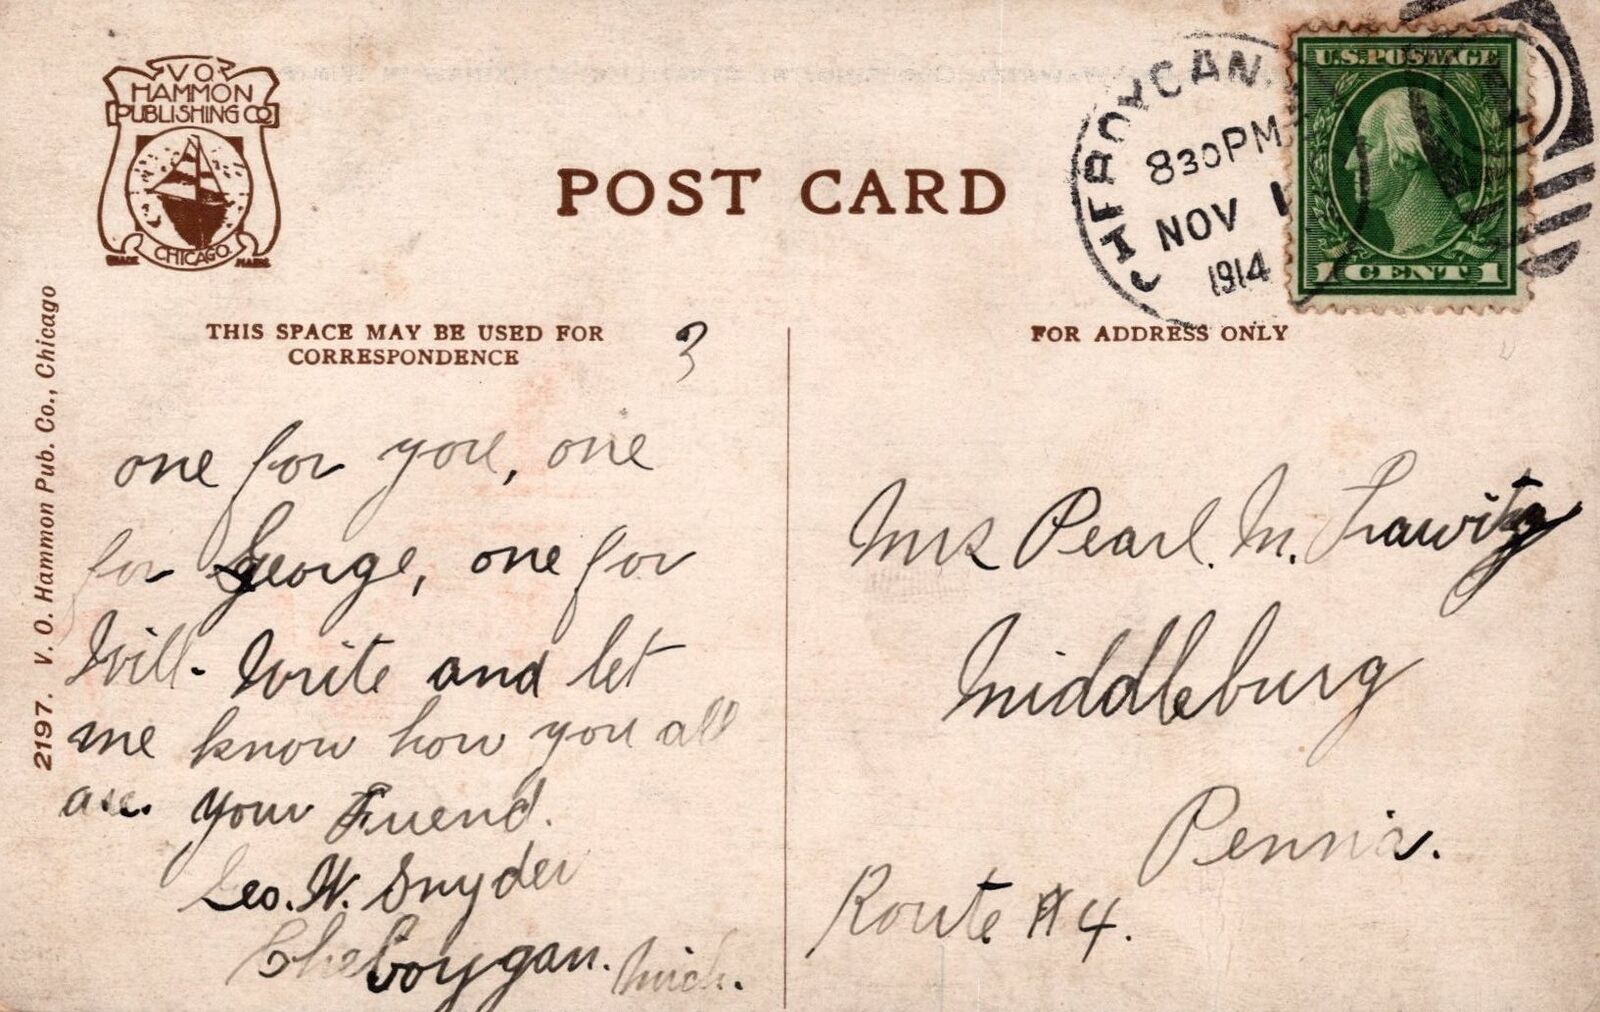 V O
HAMMON
PUBLISHING CO
CHICAGO
TRADE MARK
POST CARD
CHEBOYGAN,
830 PM
NOV 1
1914
U.S. POSTAGE
1 CENT 1
THIS SPACE MAY BE USED FOR
CORRESPONDENCE
3
FOR ADDRESS ONLY
2197. V. O. Hammon Pub. Co., Chicago
one for you, one
for George, one for
Will. Write and let
me know how you all
are. your Friend.
Geo. W. Snyder
Cheboygan. Mich.
Mrs Pearl. M.
Middleburg
Penna.
Route #4.